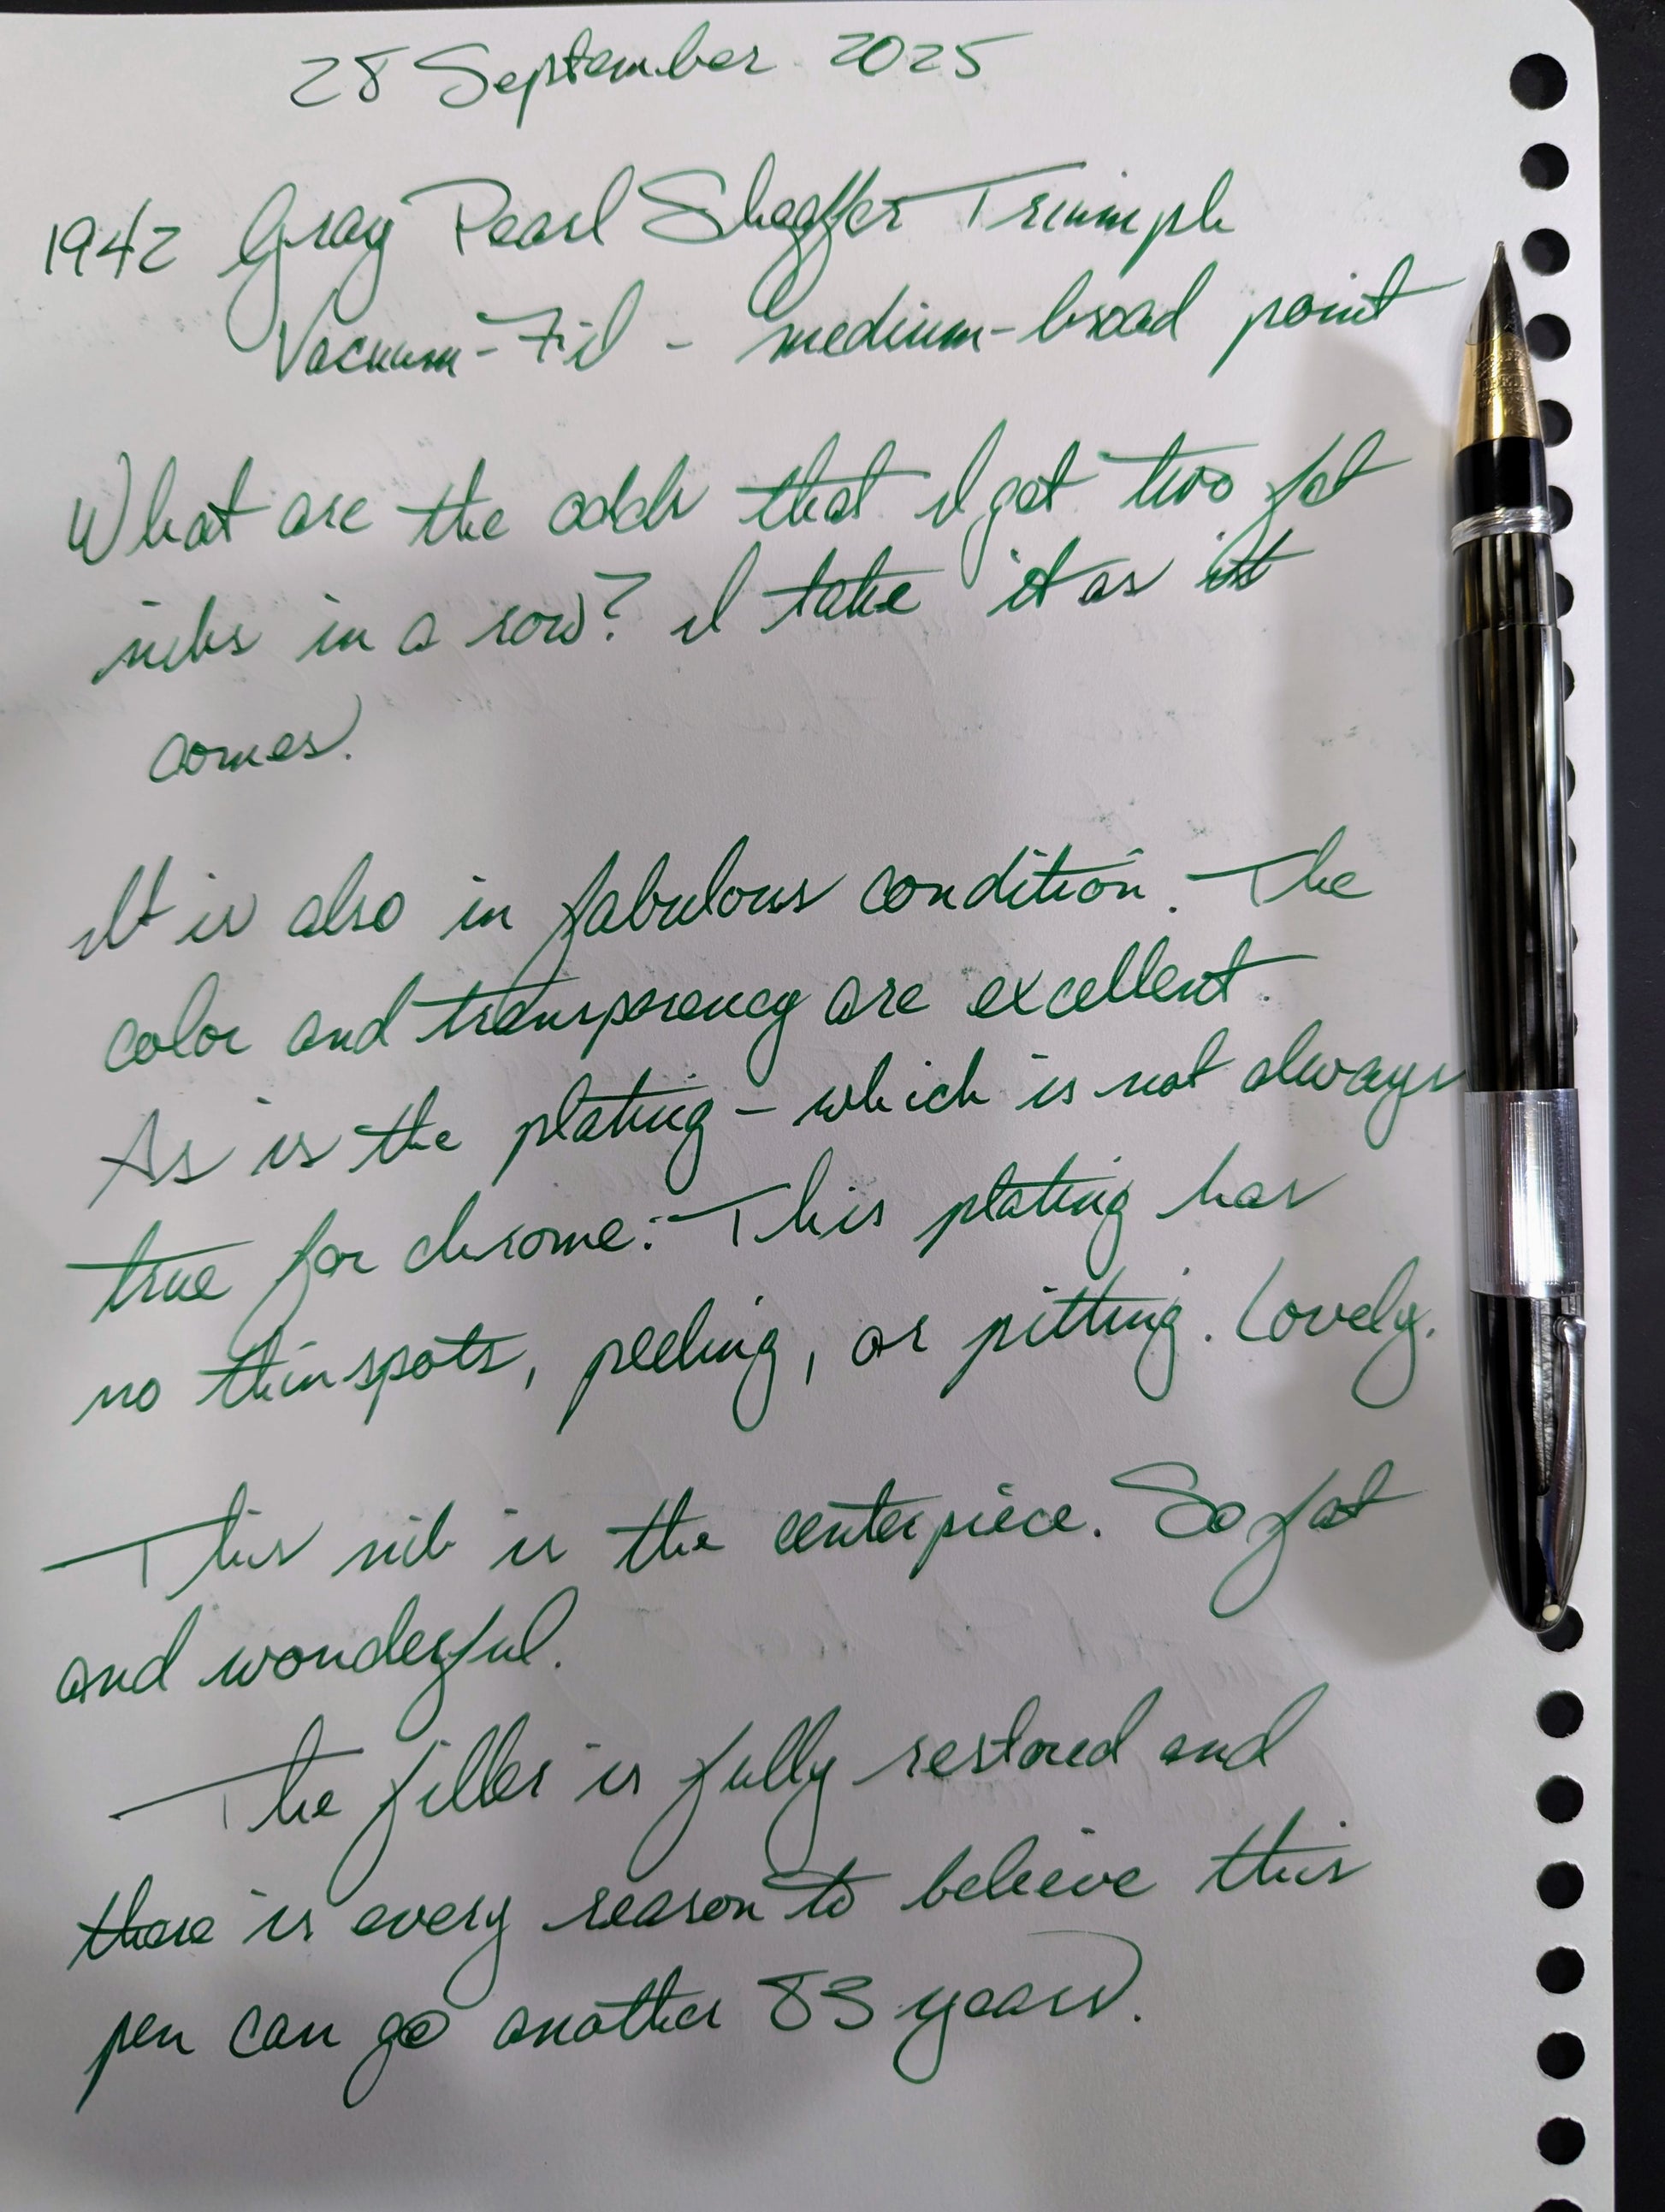 28 September 2025
1942 Gray Pearl Sheaffer Triumph
Vacuum-Fil - medium-broad point
What are the odds that I got two fat
nibs in a row? I take it as it
comes.
It is also in fabulous condition. The
color and transparency are excellent.
As is the plating - which is not always
true for chrome. This plating has
no thin spots, peeling, or pitting. Lovely.
This nib is the centerpiece. So fat
and wonderful.
The filler is fully restored and
there is every reason to believe this
pen can go another 83 years.